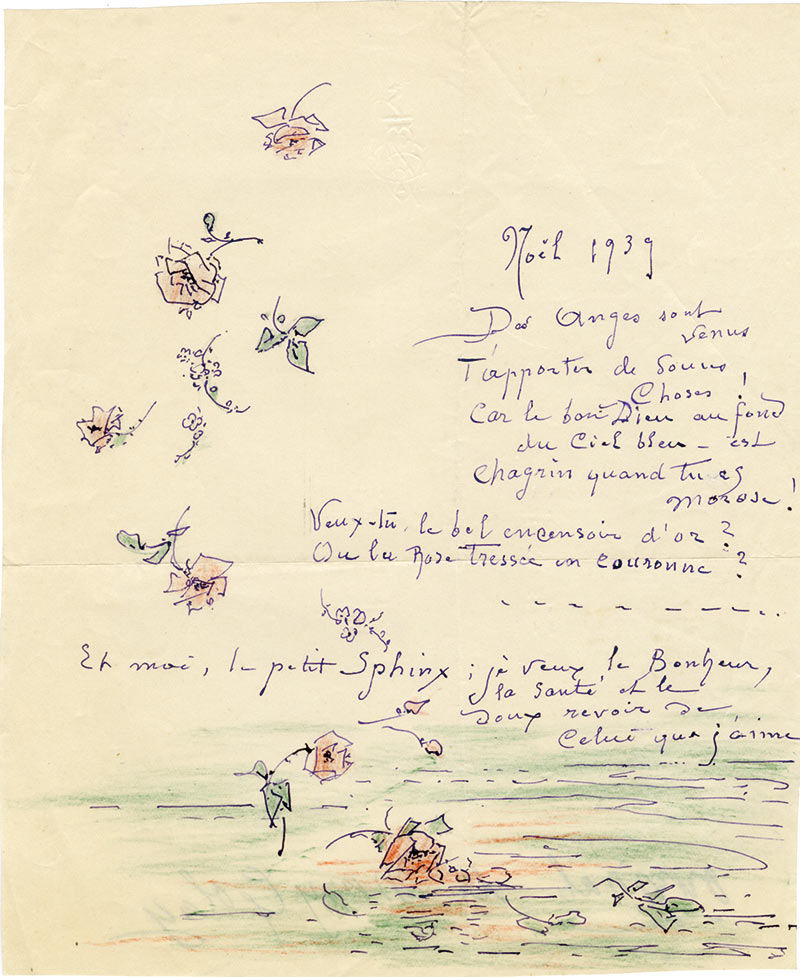 Noël 1939
Des Anges sont
venus
T'apporter de
Choses !
Car le bon Dieu au fond
du Ciel bleu - est
chagrin quand tu es
morose !
Veux-tu le bel encensoir d'or ?
Ou la Rose Tressée en couronne ?
Et moi, le petit Sphinx ; je veux le Bonheur,
la santé et le
doux revoir de
Celui que j'aime